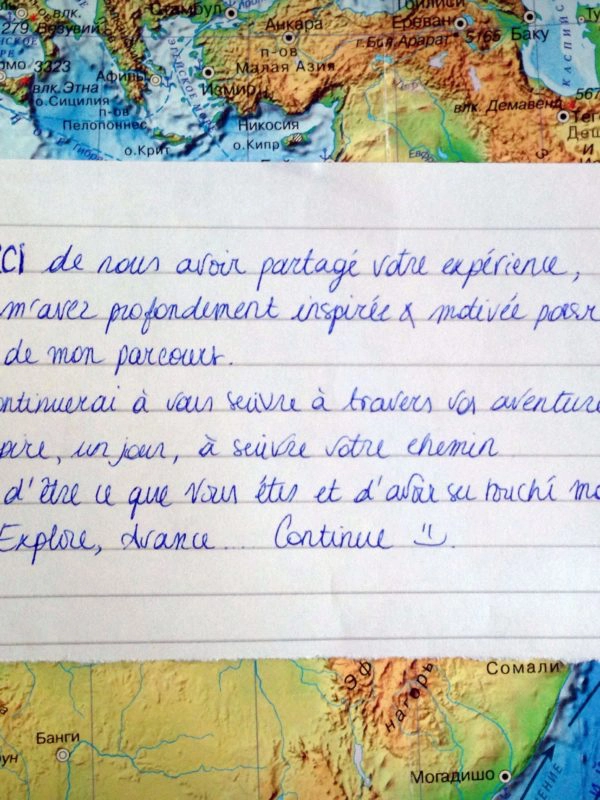 влк.
Стамбул
Тбилиси
279 Везувий
Анкара
Ереван
Баку
п-ов
Малая Азия
г.Бол.Арарат 5165
3323
Афины
влк. Этна
Измир
о.Сицилия
п-ов
Пелопоннес
Никосия
о.Крит
о.Кипр
влк. Демавенд
567
CI de nous avoir partagé votre expérience,
m'avez profondement inspirée & motivée pour
de mon parcours.
ontinuerai à vous suivre à travers vos aventure
pire, un jour, à suivre votre chemin
d'être ce que vous êtes et d'avoir su touché mo
Explore, Avance... Continue
Эф
нагорь
Сомали
Банги
Могадишо